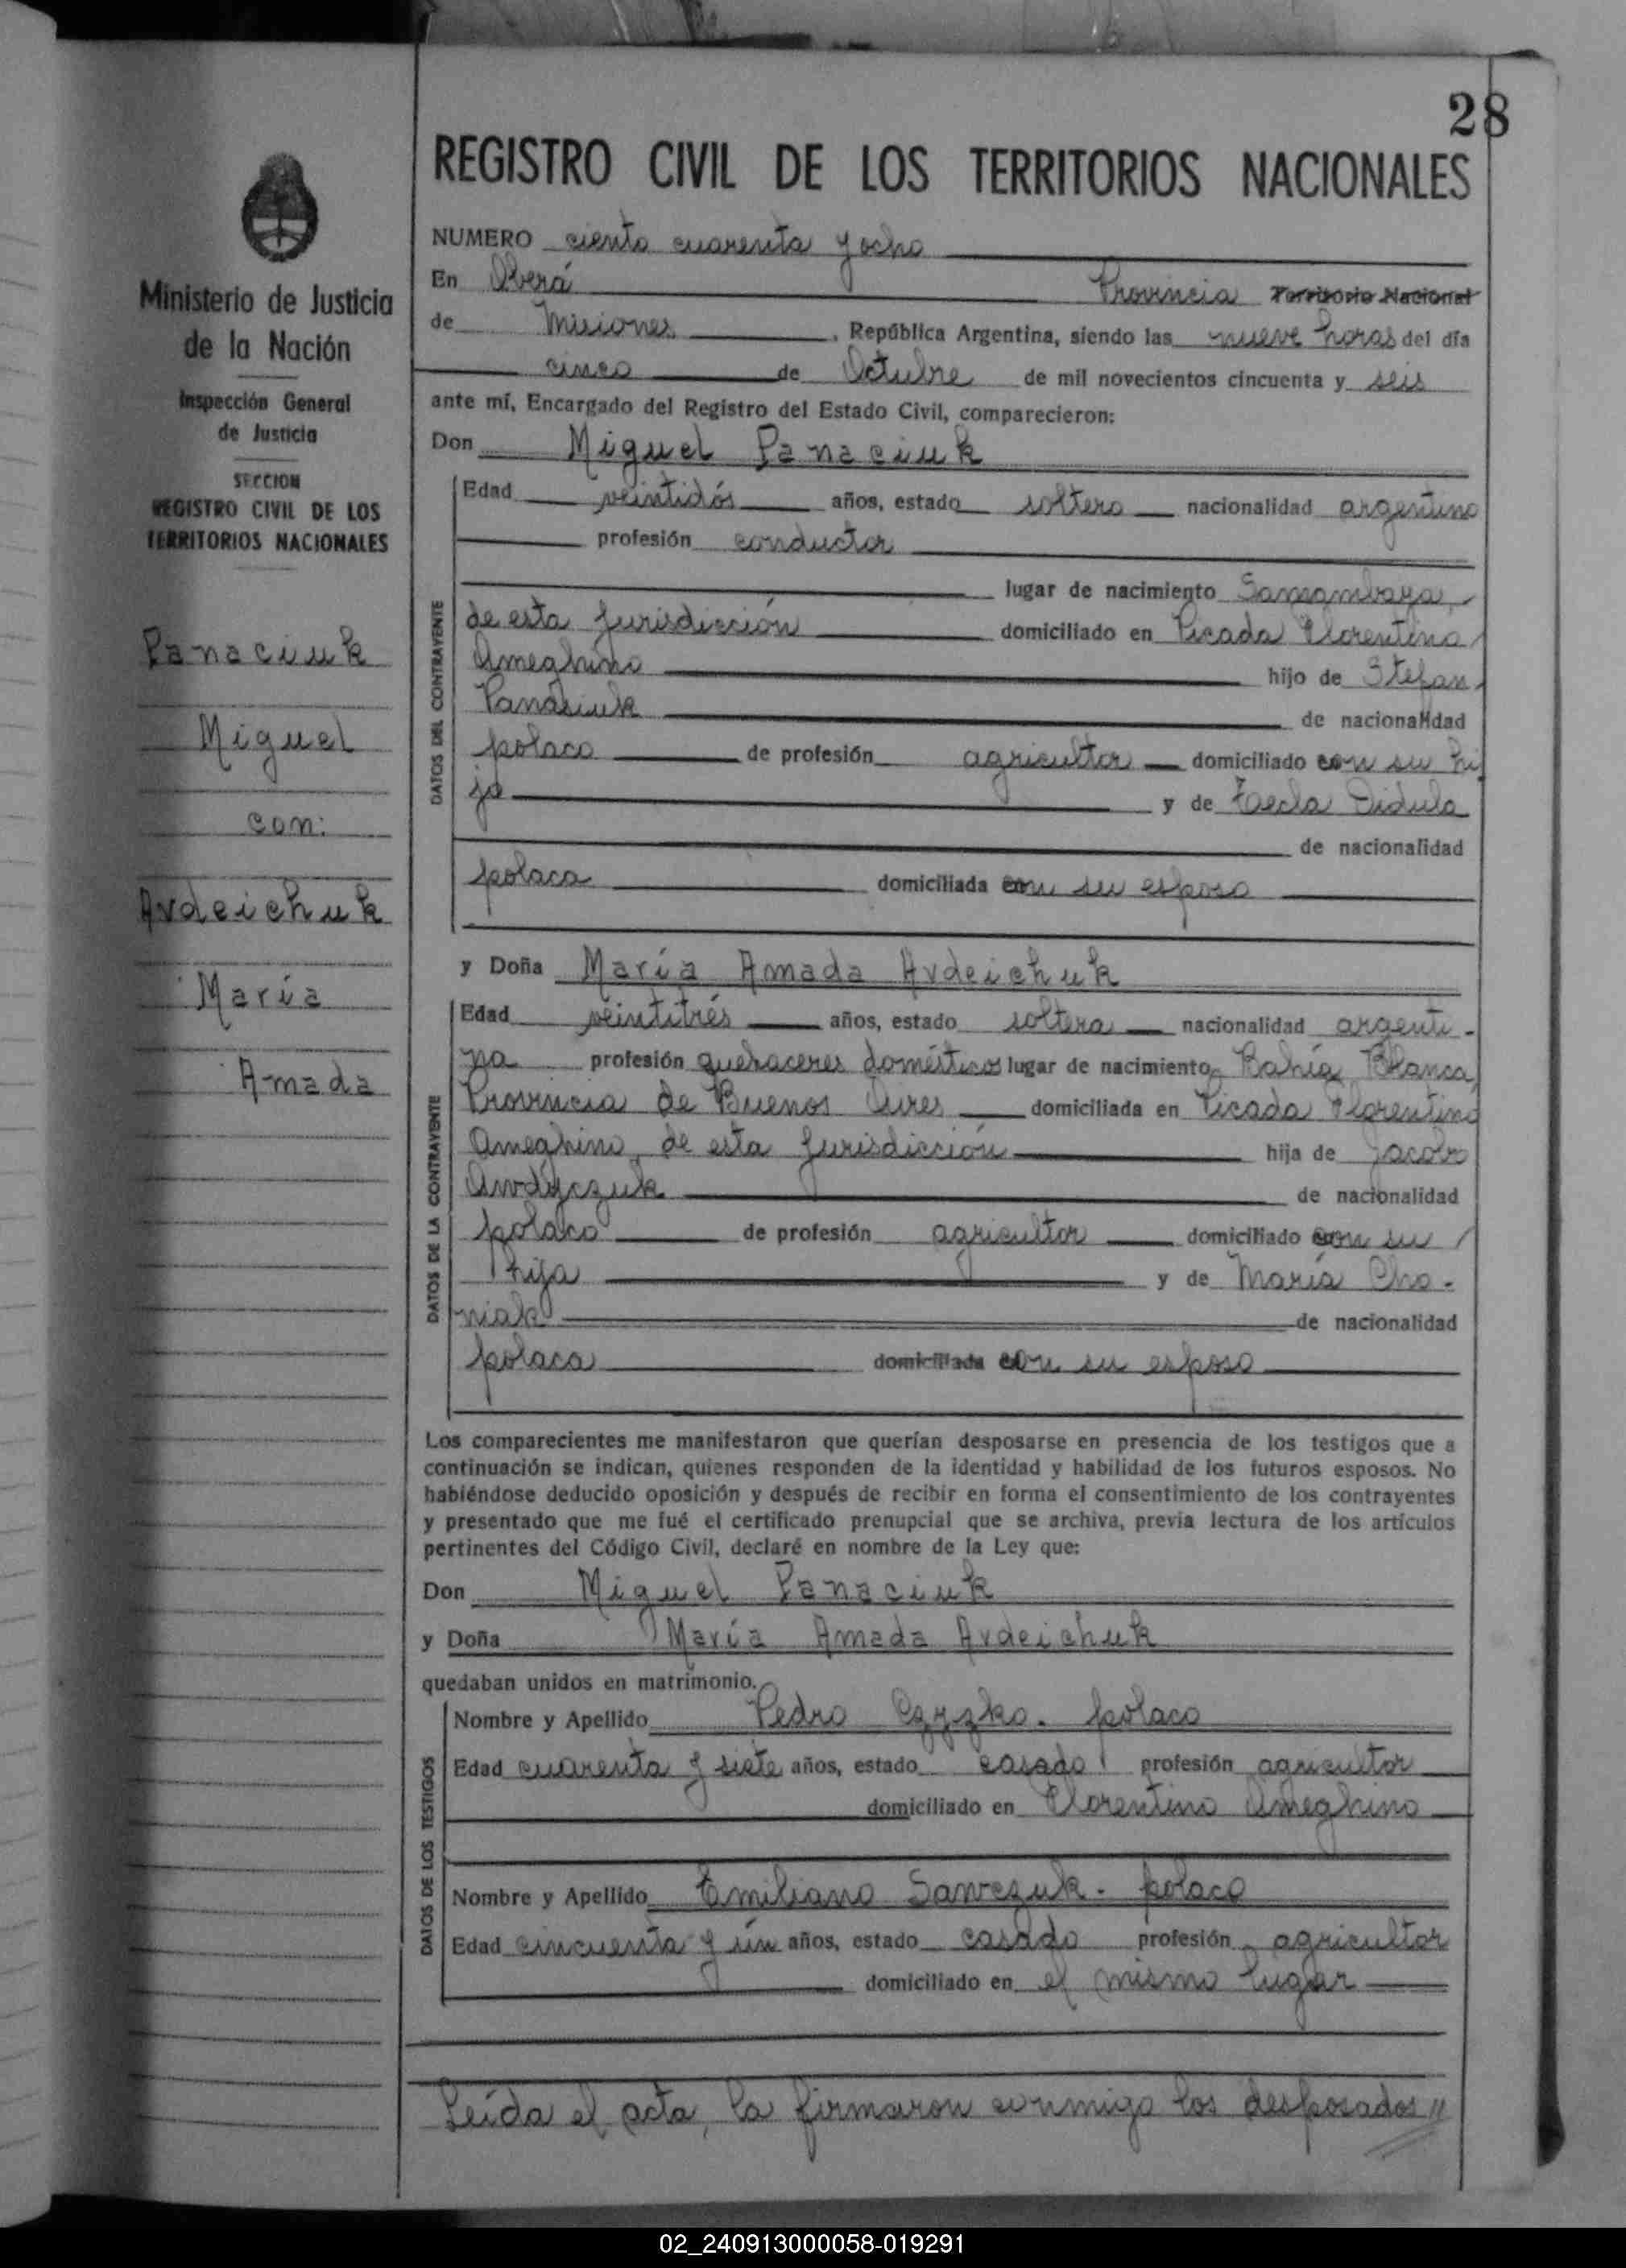 28
REGISTRO CIVIL DE LOS TERRITORIOS NACIONALES
Ministerio de Justicia
de la Nación
Inspección General
de Justicia
SECCION
REGISTRO CIVIL DE LOS
TERRITORIOS NACIONALES
Panaciuk
Miguel
con:
Avdeichuk
María
Amada
NUMERO ciento cuarenta y ocho
En Oberá Provincia Territorio Nacional
de Misiones, República Argentina, siendo las nueve horas del día
cinco de Octubre de mil novecientos cincuenta y seis
ante mí, Encargado del Registro del Estado Civil, comparecieron:
Don Miguel Panaciuk
DATOS DEL CONTRAYENTE
Edad veintidós años, estado soltero nacionalidad argentino
profesión conductor
lugar de nacimiento Samambaya,
de esta Jurisdicción domiciliado en Picada Florentino
Ameghino hijo de Stefan
Panasiuk de nacionalidad
polaco de profesión agricultor domiciliado con su hi
jo y de Taecla Didula
de nacionalidad
polaca domiciliada con su esposo
y Doña María Amada Avdeichuk
DATOS DE LA CONTRAYENTE
Edad veintitrés años, estado soltera nacionalidad argenti-
na profesión quehaceres domésticos lugar de nacimiento Bahía Blanca,
Provincia de Buenos Aires domiciliada en Picada Florentino
Ameghino, de esta Jurisdicción hija de Jacobo
Awdyczuk de nacionalidad
polaco de profesión agricultor domiciliado con su
hija y de María Cho-
niak de nacionalidad
polaca domiciliada con su esposo
Los comparecientes me manifestaron que querían desposarse en presencia de los testigos que a
continuación se indican, quienes responden de la identidad y habilidad de los futuros esposos. No
habiéndose deducido oposición y después de recibir en forma el consentimiento de los contrayentes
y presentado que me fué el certificado prenupcial que se archiva, previa lectura de los artículos
pertinentes del Código Civil, declaré en nombre de la Ley que:
Don Miguel Panaciuk
y Doña María Amada Avdeichuk
quedaban unidos en matrimonio.
DATOS DE LOS TESTIGOS
Nombre y Apellido Pedro Czyzko. polaco
Edad cuarenta y siete años, estado casado profesión agricultor
domiciliado en Florentino Ameghino
Nombre y Apellido Emiliano Sawczuk - polaco
Edad cincuenta y ún años, estado casado profesión agricultor
domiciliado en el mismo lugar
Leída el acta, la firmaron conmigo los desposados //
02_240913000058-019291